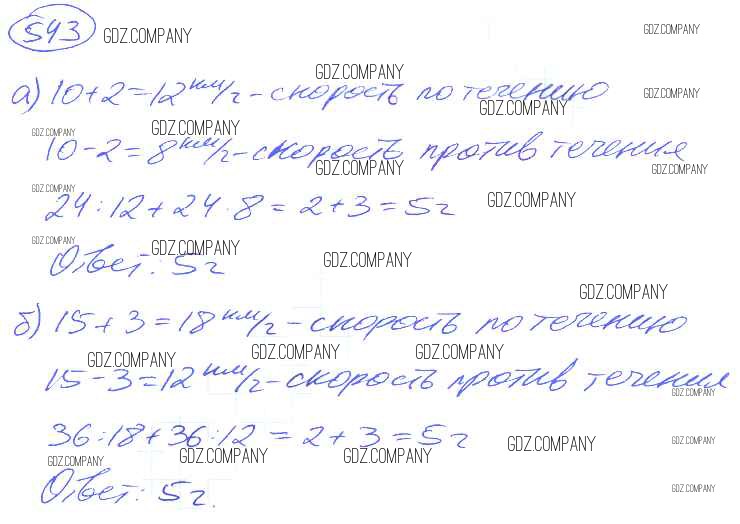 543 GDZ.COMPANY GDZ.COMPANY
GDZ.COMPANY
а) 10+2=12 км/ч - скорость по течению GDZ.COMPANY
GDZ.COMPANY
GDZ.COMPANY GDZ.COMPANY
10-2=8 км/ч - скорость против течения
GDZ.COMPANY GDZ.COMPANY
GDZ.COMPANY
24:12+24·8=2+3=5ч GDZ.COMPANY
GDZ.COMPANY GDZ.COMPANY
Ответ: 5ч GDZ.COMPANY
GDZ.COMPANY
б) 15+3=18 км/ч - скорость по течению
GDZ.COMPANY GDZ.COMPANY GDZ.COMPANY
15-3=12 км/ч - скорость против течения
GDZ.COMPANY
36:18+36:12=2+3=5ч GDZ.COMPANY GDZ.COMPANY
GDZ.COMPANY GDZ.COMPANY GDZ.COMPANY
Ответ: 5ч. GDZ.COMPANY